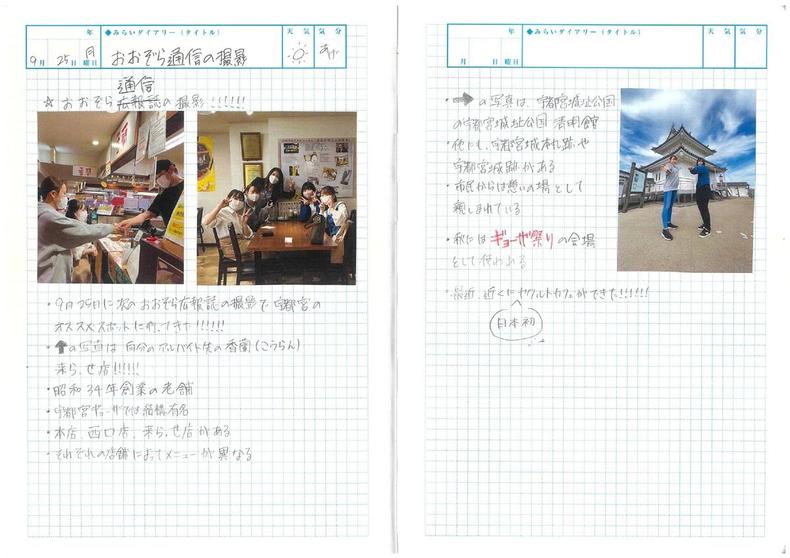 年 ◆みらいダイアリー（タイトル） 天気 気分
9月 25日 月曜日 おおぞら通信の撮影
通信
☆おおぞら広報誌の撮影!!!!!!
・9月25日に次のおおぞら広報誌の撮影で宇都宮の
オススメスポットに行ってきた!!!!!!
・⬆の写真は自分のアルバイト先の香蘭(こうらん)
来らっせ店!!!!!!
・昭和34年創業の老舗
・宇都宮ギョーザでは結構有名
・本店、西口店、来らっせ店がある
・それぞれの店舗によってメニューが異なる
年 ◆みらいダイアリー（タイトル） 天気 気分
月 日 曜日
・➡の写真は、宇都宮城址公園
の宇都宮城址公園 清明館
・他にも、宇都宮城本丸跡や
宇都宮城跡がある
・市民からは憩いの場として
親しまれている
・秋にはギョーザ祭りの会場
として使われる
・最近、近くにヤクルトカフェができた!!!!!!
日本初